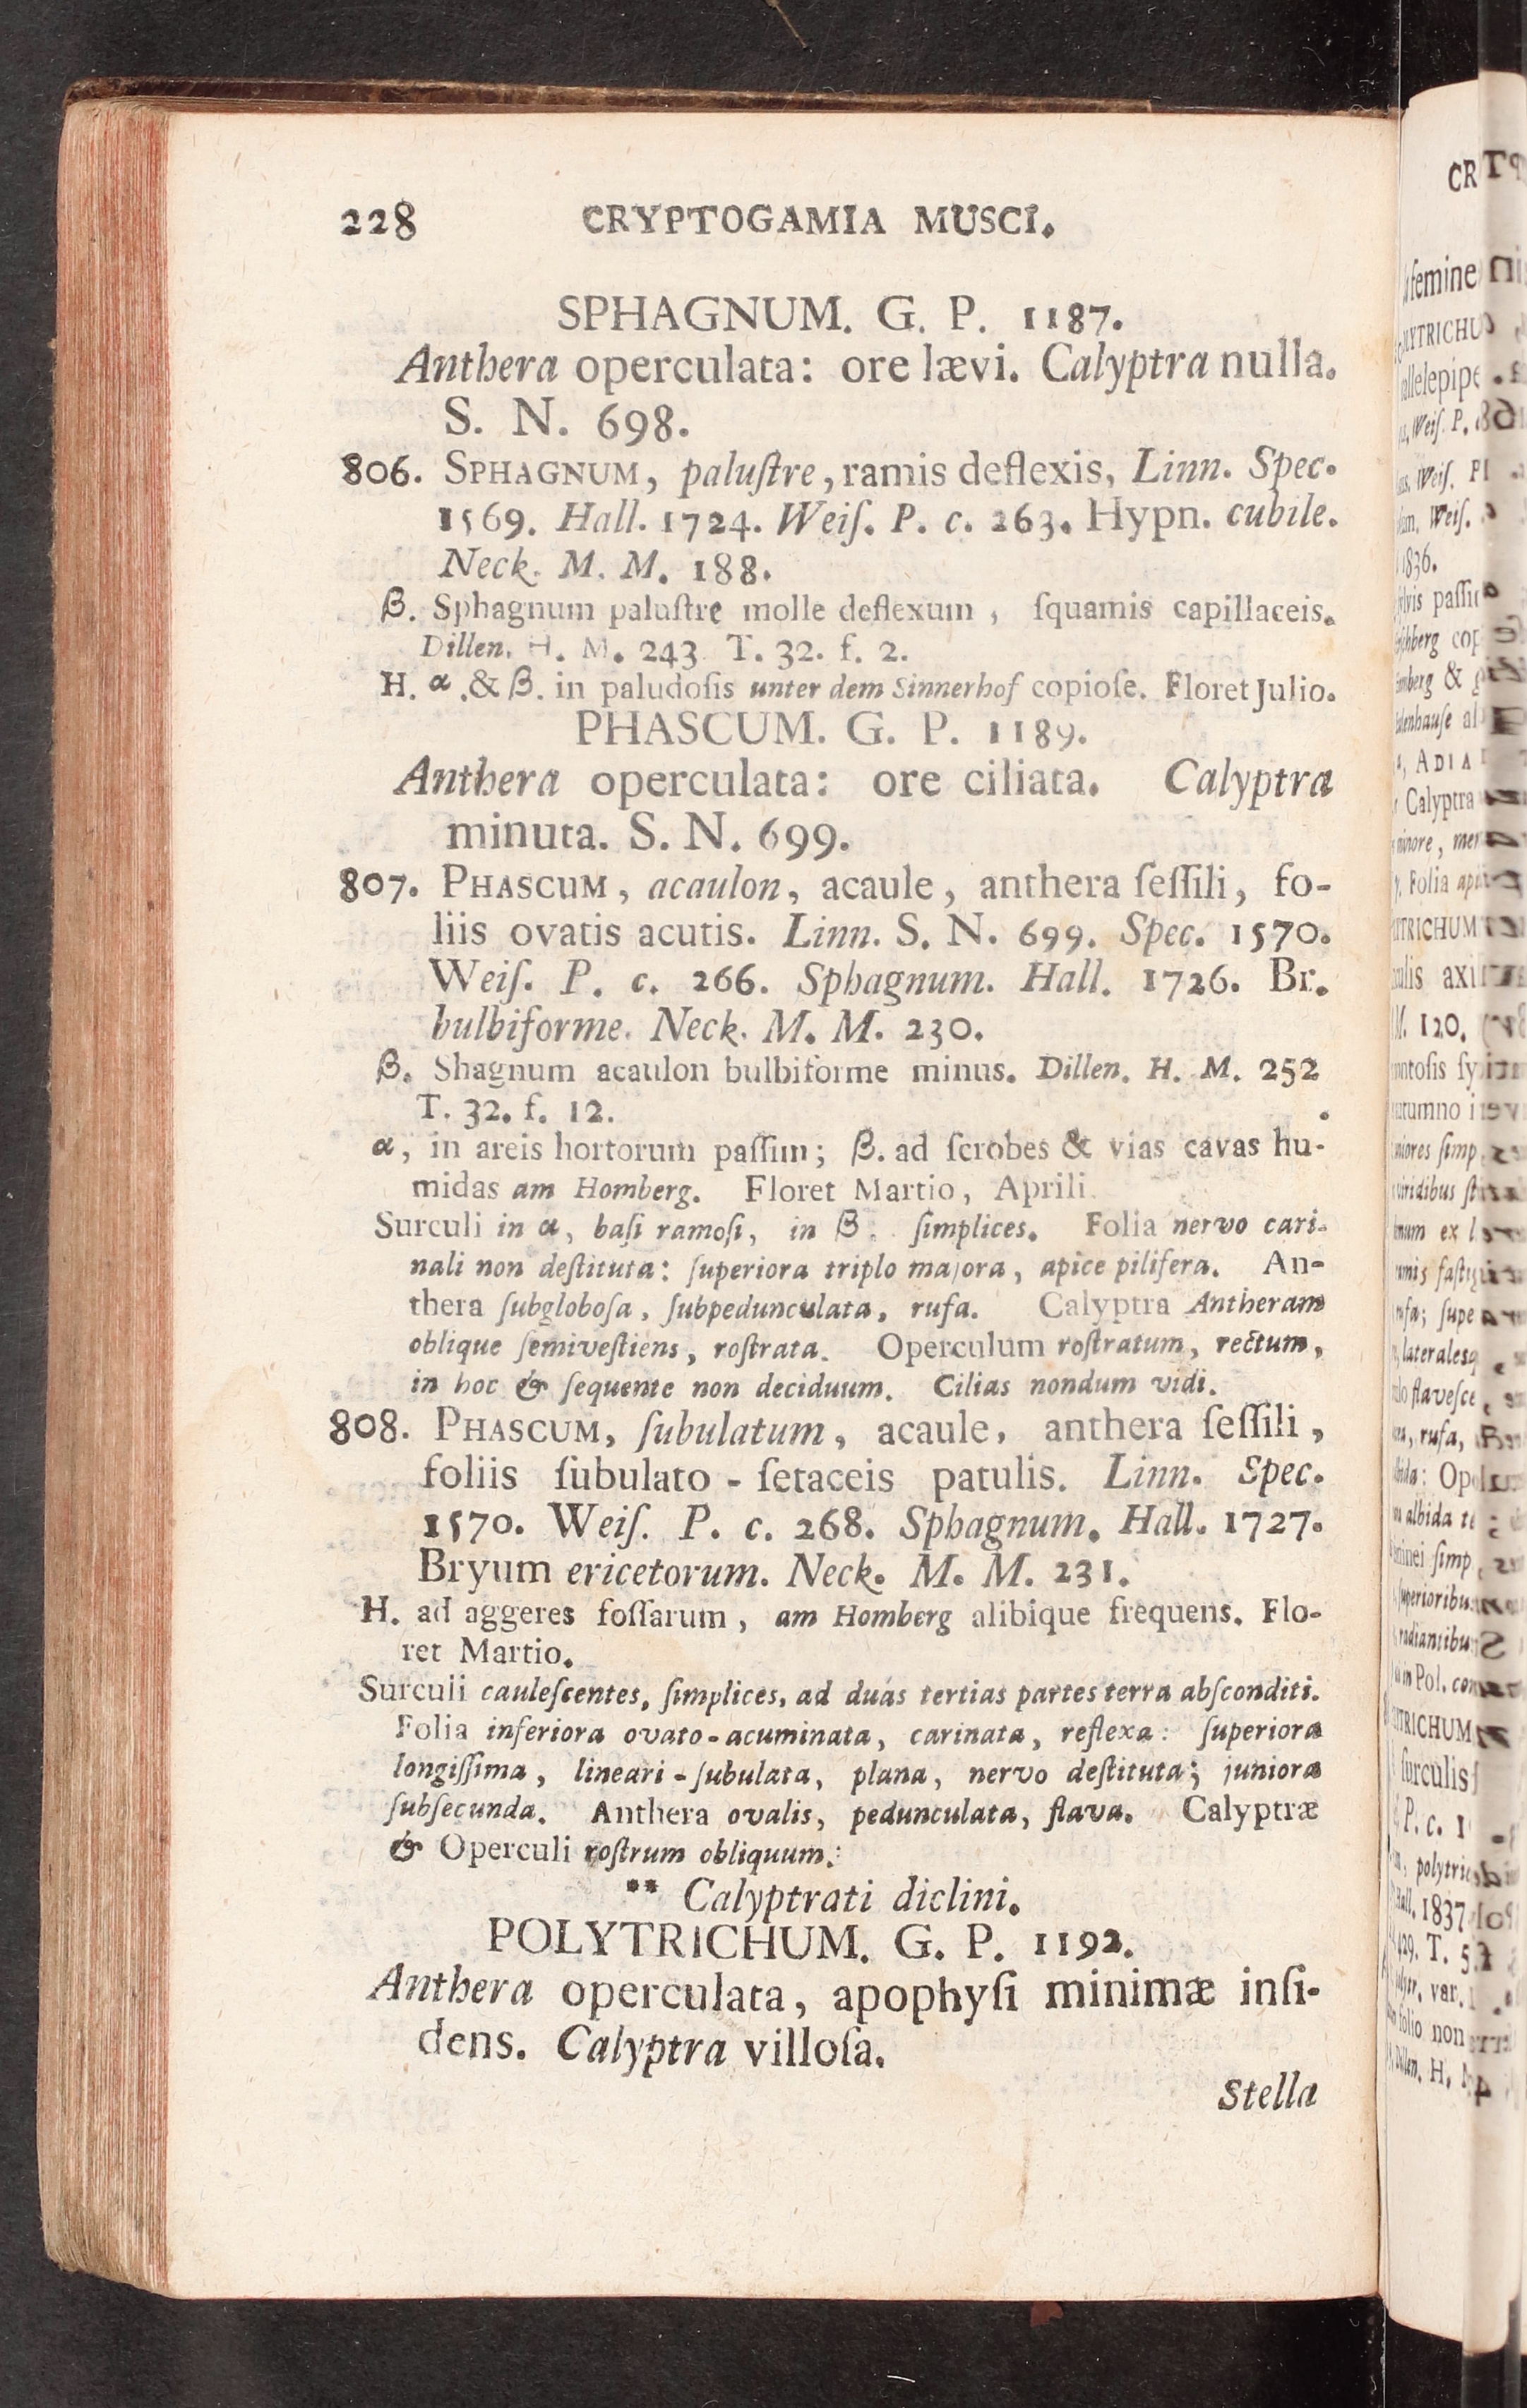 228 CRYPTOGAMIA MUSCI.
SPHAGNUM. G. P. 1187.
Anthera operculata: ore lævi. Calyptra nulla.
S. N. 698.
806. SPHAGNUM, paluſtre, ramis deflexis, Linn. Spec.
1569. Hall. 1724. Weiſ. P. c. 263. Hypn. cubile.
Neck. M. M. 188.
β. Sphagnum paluſtre molle deflexum, ſquamis capillaceis.
Dillen. H. M. 243 T. 32. f. 2.
H. α .& β. in paludoſis unter dem Sinnerhof copioſe. Floret Julio.
PHASCUM. G. P. 1189.
Anthera operculata: ore ciliata. Calyptra
minuta. S. N. 699.
807. PHASCUM, acaulon, acaule, anthera ſeſſili, fo-
liis ovatis acutis. Linn. S. N. 699. Spec. 1570.
Weiſ. P. c. 266. Sphagnum. Hall. 1726. Br.
bulbiforme. Neck. M. M. 230.
β. Shagnum acaulon bulbiforme minus. Dillen. H. M. 252
T. 32. f. 12.
α, in areis hortorum paſſim; β. ad ſcrobes & vias cavas hu-
midas am Homberg. Floret Martio, Aprili.
Surculi in α, baſi ramoſi, in β. ſimplices. Folia nervo cari-
nali non deſtituta: ſuperiora triplo majora, apice pilifera. An-
thera ſubgloboſa, ſubpedunculata, rufa. Calyptra Antheram
oblique ſemiveſtiens, roſtrata. Operculum roſtratum, rectum,
in hoc & ſequente non deciduum. Cilias nondum vidi.
808. PHASCUM, ſubulatum, acaule, anthera ſeſſili,
foliis ſubulato-ſetaceis patulis. Linn. Spec.
1570. Weiſ. P. c. 268. Sphagnum. Hall. 1727.
Bryum ericetorum. Neck. M. M. 231.
H. ad aggeres foſſarum, am Homberg alibique frequens. Flo-
ret Martio.
Surculi cauleſcentes, ſimplices, ad duas tertias partes terra abſconditi.
Folia inferiora ovato-acuminata, carinata, reflexa: ſuperiora
longiſſima, lineari-ſubulata, plana, nervo deſtituta; juniora
ſubſecunda. Anthera ovalis, pedunculata, flava. Calyptræ
& Operculi roſtrum obliquum.
** Calyptrati diclini.
POLYTRICHUM. G. P. 1192.
Anthera operculata, apophyſi minimæ inſi-
dens. Calyptra villoſa.
Stella